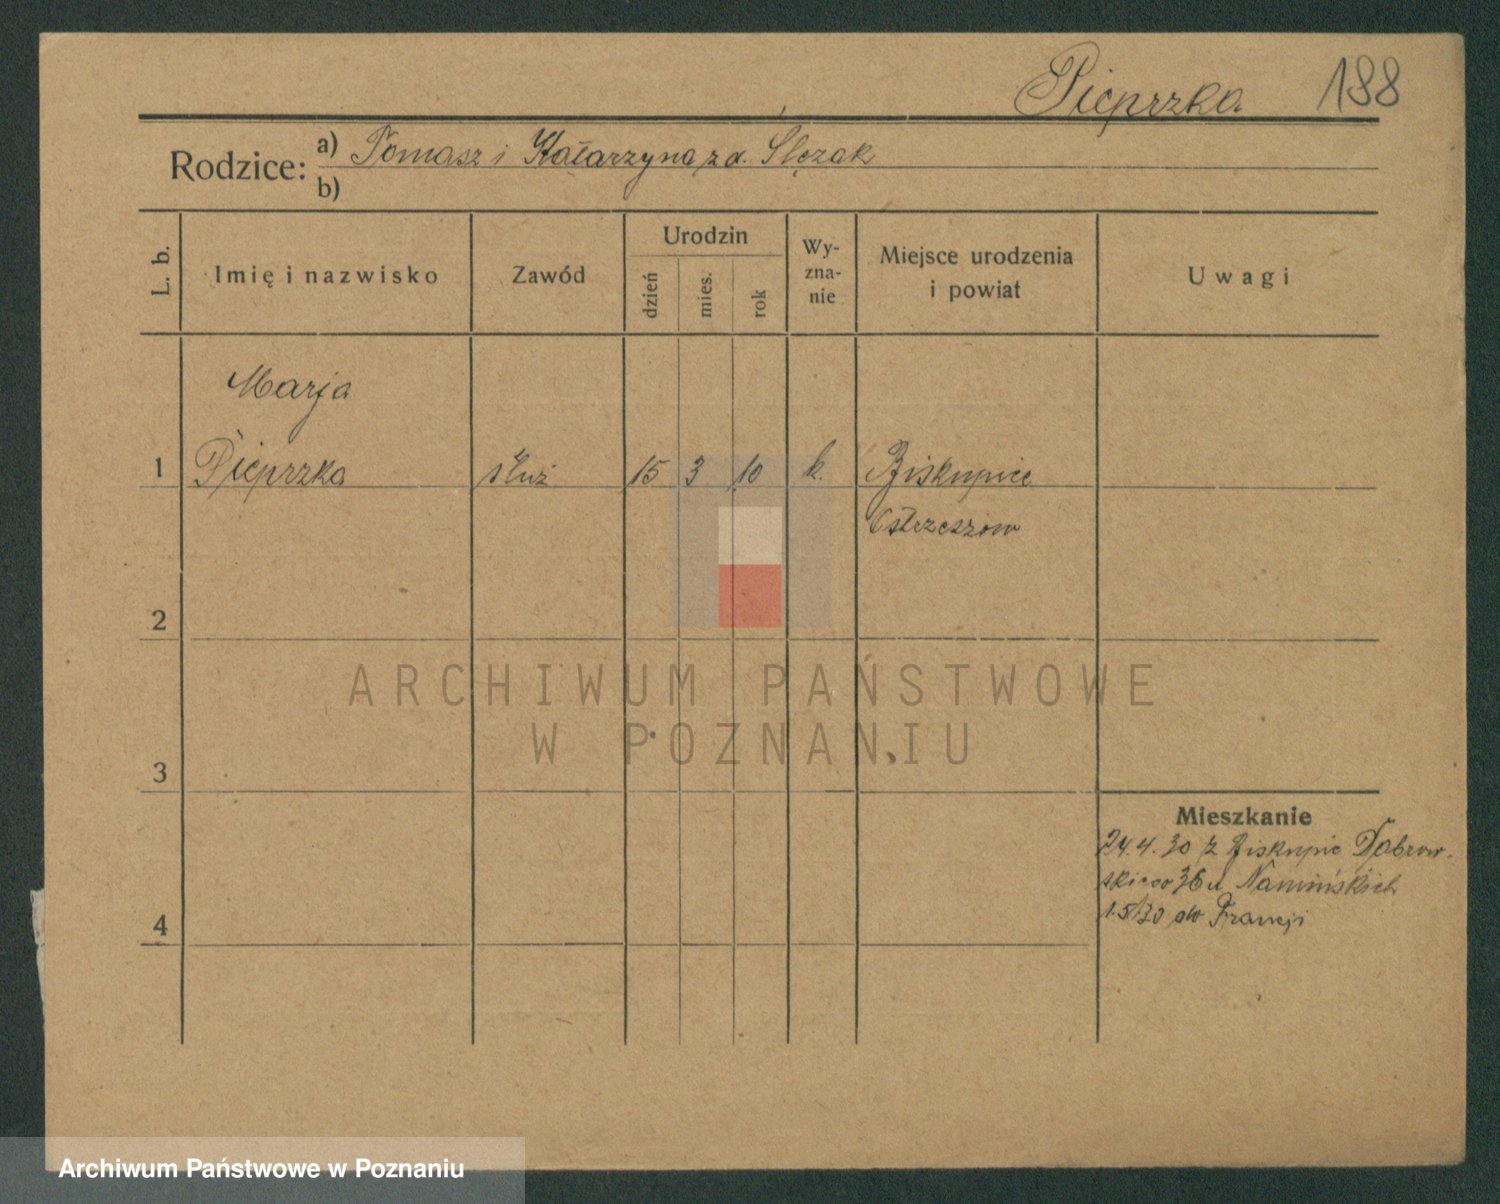 Pieprzka 188
Rodzice: a) Tomasz i Katarzyna z d. Ślęzak
b)
L. b. Imię i nazwisko Zawód Urodzin dzień mies. rok Wy-zna-nie Miejsce urodzenia i powiat Uwagi
Marja
1 Pieprzka służ 15 3 10 k. Biskupice
Ostrzeszów
2
ARCHIWUM PAŃSTWOWE
W POZNANIU
3
Mieszkanie
24.4.30 z Biskupic Dąbrow-
skiego 36 u Namińskich
4 1.5/30 do Francji
Archiwum Państwowe w Poznaniu